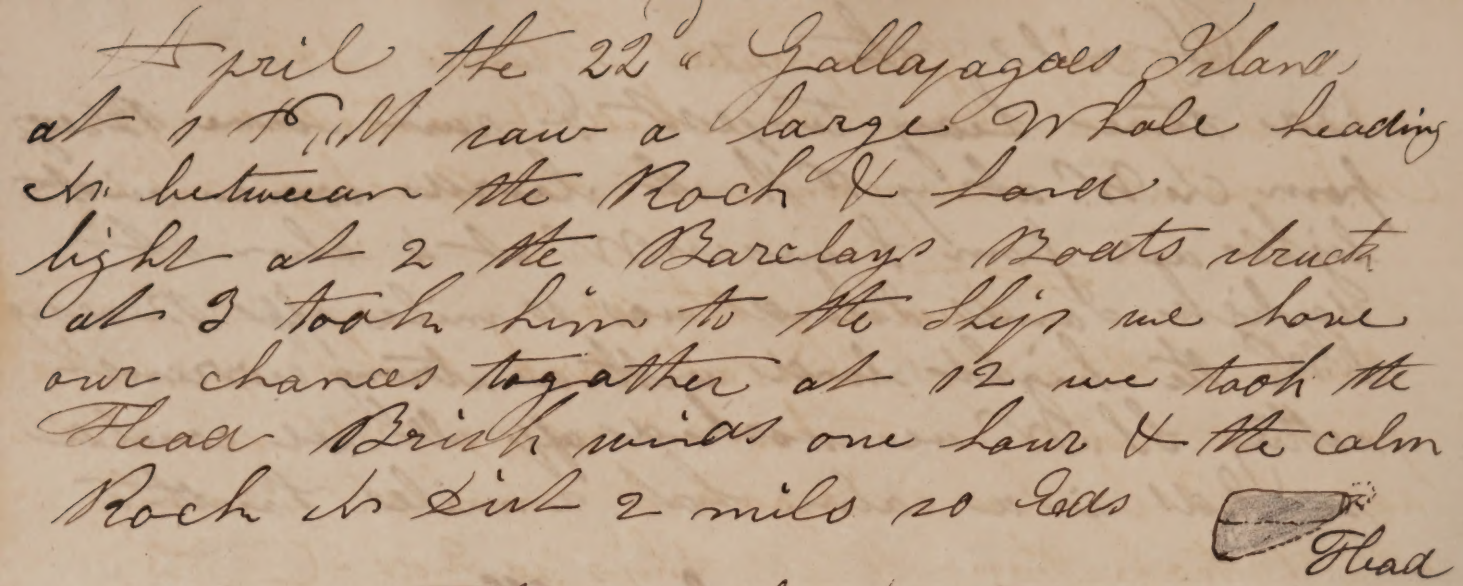 April the 22" Gallapagoes Iland
at 1 P,,M saw a large Whale heading
N. betweean the Rock & Land
light at 2 the Barclays Boats struck
at 3 took him to the Ship we have
our chances togather at 12 we took the
Head Brisk winds one hour & the calm
Rock N Dist 2 mils so Eds
Head